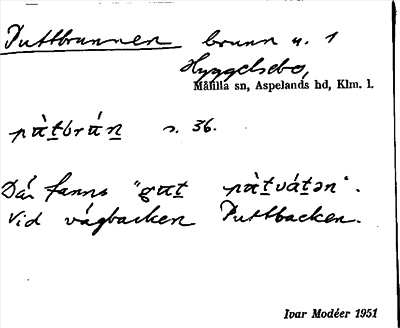 Puttbrunnen brunn n. 1
Hyggelsebo,
Målilla sn, Aspelands hd, Klm. l.
pùt̲brún̲ s. 36.
Där fanns "gɷt̲ pùt̲vát̲ən".
Vid vägbacken Puttbacken.
Ivar Modéer 1951